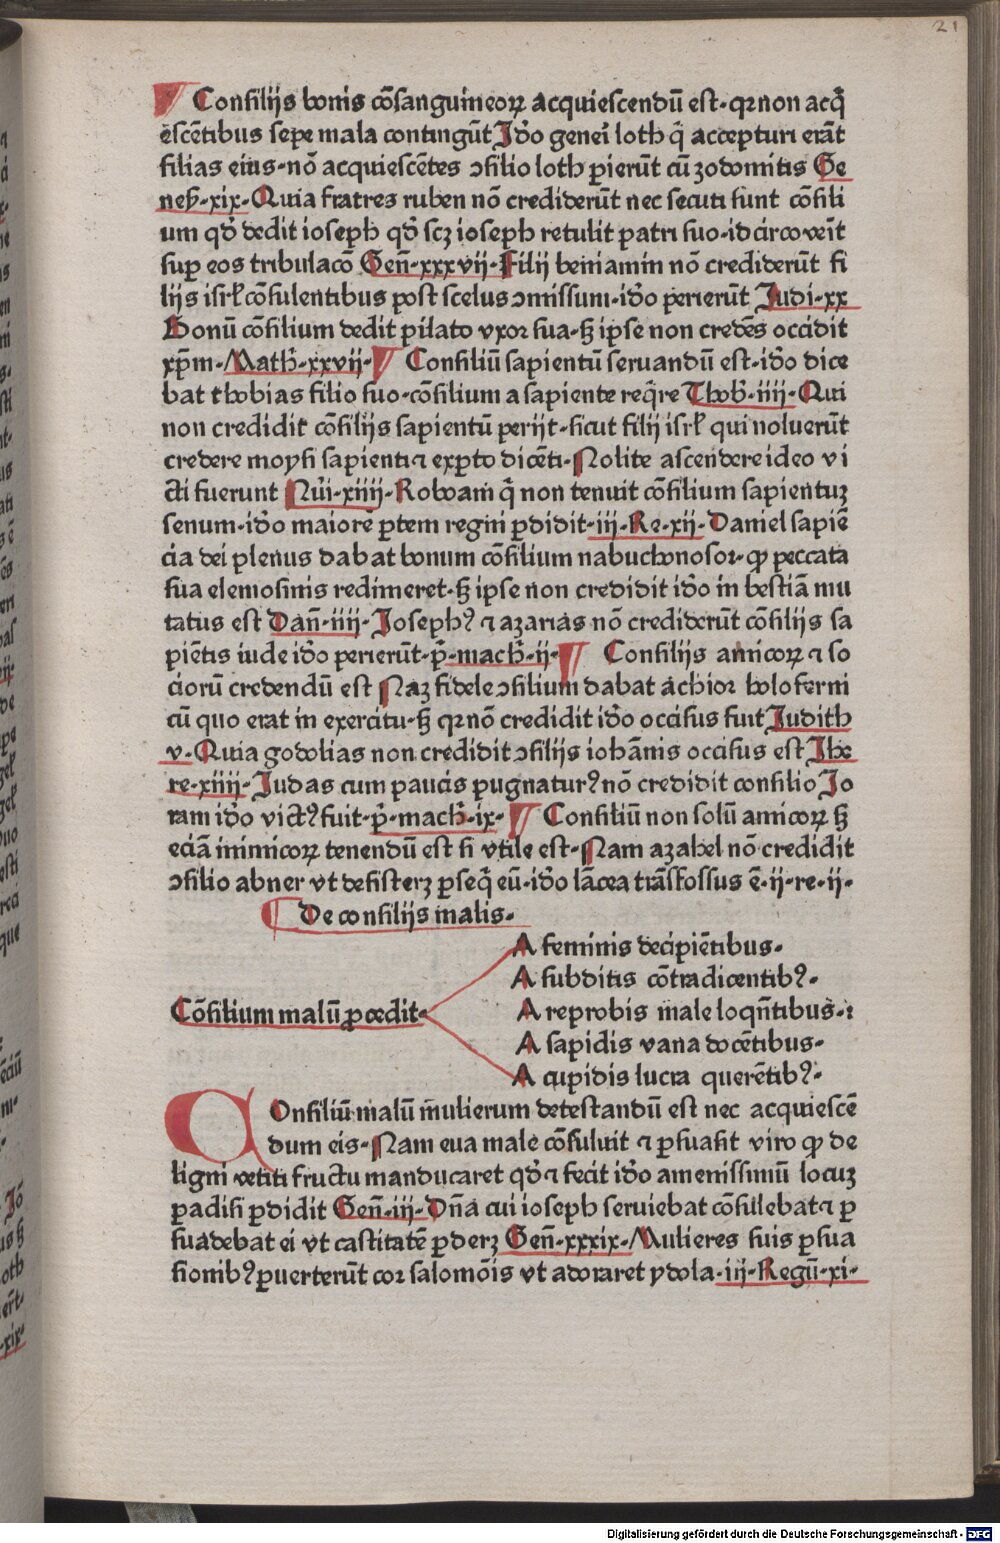 21
Consilijs bonis cōsanguineoꝝ acquiescendū est· qꝛ non acq̄
escētibus sepe mala contingūt Iđo generi loth q̄ accepturi erāt
filias eius· nō acquiescētes ↄsilio loth ꝑierūt cū zodomitis Ge
neß· xix· Quia fratres ruben nō crediderūt nec secuti sunt cōsili
um qđ dedit ioseph qđ scꝫ ioseph retulit patri suo· idcirco veīt
suꝑ eos tribulacō Geñ· xxxvii· Filij beniamin nō crediderūt fi
lijs isrł cōsulentibus post scelus ↄmissum· iđo perierūt Judi· xx
Bonū cōsilium dedit pilato vxor sua· sꝫ ipse non credēs occidit
xp̄m· Math· xxvij· Consiliū sapientū seruandū est· iđo dice
bat thobias filio suo· cōsilium a sapiente req̄re Thob· iiij· Qui
non credidit cōsilijs sapientū perijt· sicut filij isrł qui noluerūt
credere moysi sapienti ⁊ exꝑto dicēti· Nolite ascendere ideo vi
cti fuerunt Nūi· xiiij· Roboam q̄ non tenuit cōsilium sapientuꝫ
senum· iđo maiorē ꝑtem regni ꝑdidit· iij· Re· xij· Daniel sapiē
cia dei plenus dabat bonum cōsilium nabuchonosor· ꝙ peccata
sua elemosinis redimeret· sꝫ ipse non credidit iđo in bestiā mu
tatus est Dañ· iiij· Josephꝰ ⁊ azarias nō crediderūt cōsilijs sa
piētis iude iđo perierūt· p̄· mach· ij· Consilijs amicoꝝ ⁊ so
ciorū credendū est Naꝫ fidele ↄsilium dabat achior holoferni
cū quo erat in exercitu· sꝫ qꝛ nō credidit iđo occisus fuit Judith
v· Quia godolias non credidit ↄsilijs iohānis occisus est Ihe
re· xiiij· Judas cum paucis pugnaturꝰ nō credidit consilio Jo
ram iđo victꝰ fuit· p̄· mach· ix· Consiliū non solū amicoꝝ sꝫ
eciā inimicoꝝ tenendū est si vtile est· Nam azahel nō credidit
ↄsilio abner vt desisterꝫ ꝑseq̄ eū· iđo lācea trāsfossus ē· ij· re· ij·
De consilijs malis·
A feminis decipiētibus·
A subditis cōtradicentibꝰ·
Cōsilium malū ꝓcedit·
A reprobis male loqñtibus·
A sapidis vana docētibus·
A cupidis lucra querētibꝰ·
Consiliū malū m̄ulierum detestandū est nec acquiescē
dum eis· Nam eua male cōsuluit ⁊ ꝑsuasit viro ꝙ de
ligni vetiti fructu manducaret qđ ⁊ fecit iđo amenissimū locuꝫ
ꝑadisi ꝑdidit Geñ· iij· Dñā cui ioseph seruiebat cōsulebat ⁊ ꝑ
suadebat ei vt castitatē ꝑderꝫ Geñ· xxxix· Mulieres suis ꝑsua
sionibꝰ ꝑuerterūt cor salomōis vt adoraret ydola· iij· Regū· xi·
Digitalisierung gefördert durch die Deutsche Forschungsgemeinschaft - DFG